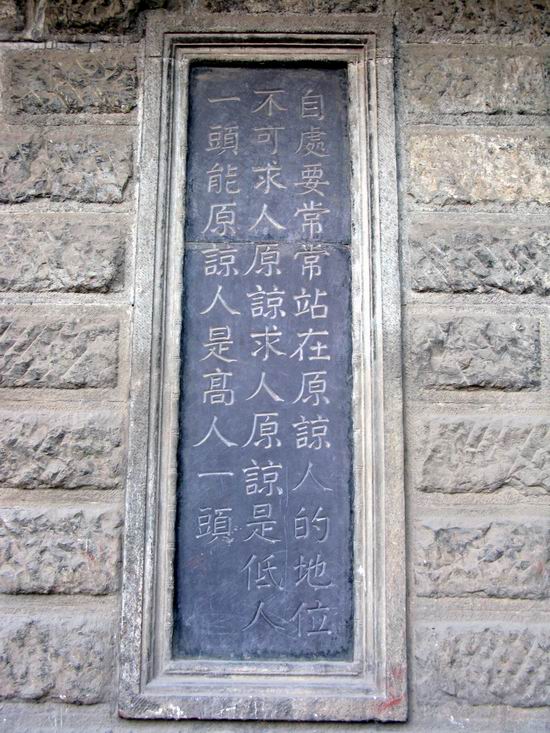 自處要常常站在原諒人的地位
不可求人原諒求人原諒是低人
一頭能原諒人是髙人一頭